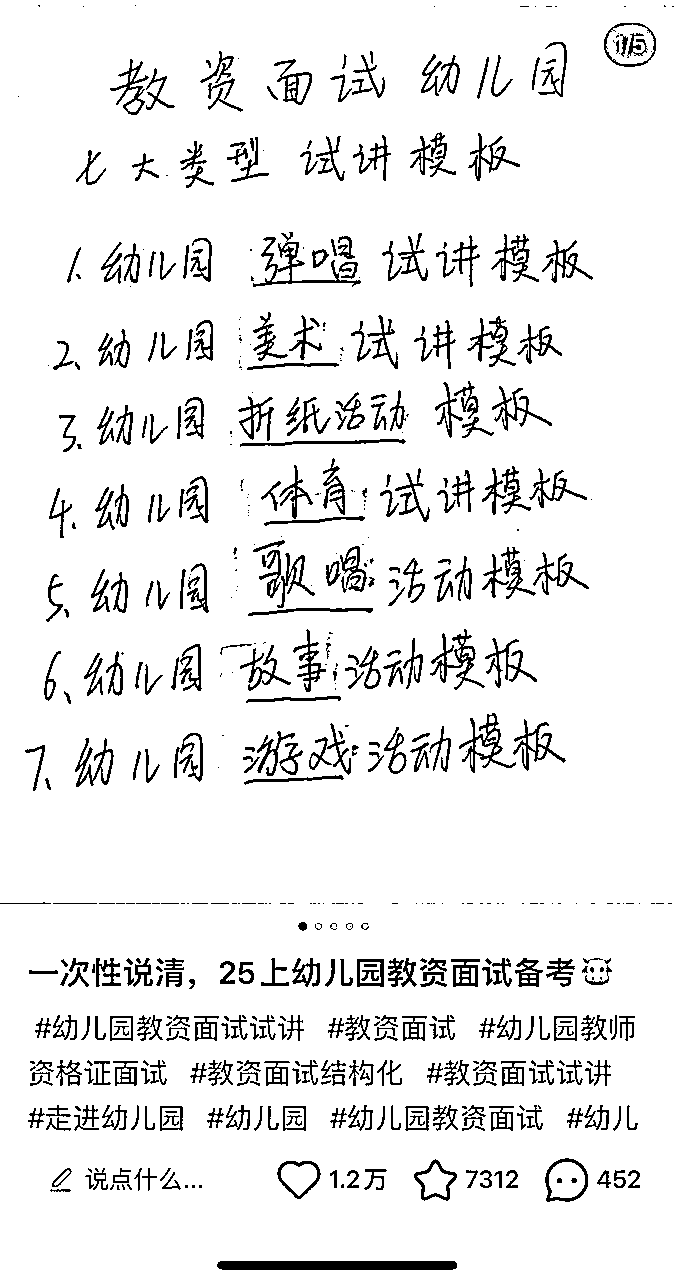 1/5
教资面试 幼儿园
七大类型 试讲模板
1. 幼儿园 弹唱 试讲模板
2. 幼儿园 美术 试讲模板
3. 幼儿园 折纸活动 模板
4. 幼儿园 体育 试讲模板
5. 幼儿园 歌唱 活动模板
6、幼儿园 故事 活动模板
7、幼儿园 游戏 活动模板
一次性说清，25上幼儿园教资面试备考
#幼儿园教资面试试讲 #教资面试 #幼儿园教师
资格证面试 #教资面试结构化 #教资面试试讲
#走进幼儿园 #幼儿园 #幼儿园教资面试 #幼儿
说点什么... 1.2万 7312 452